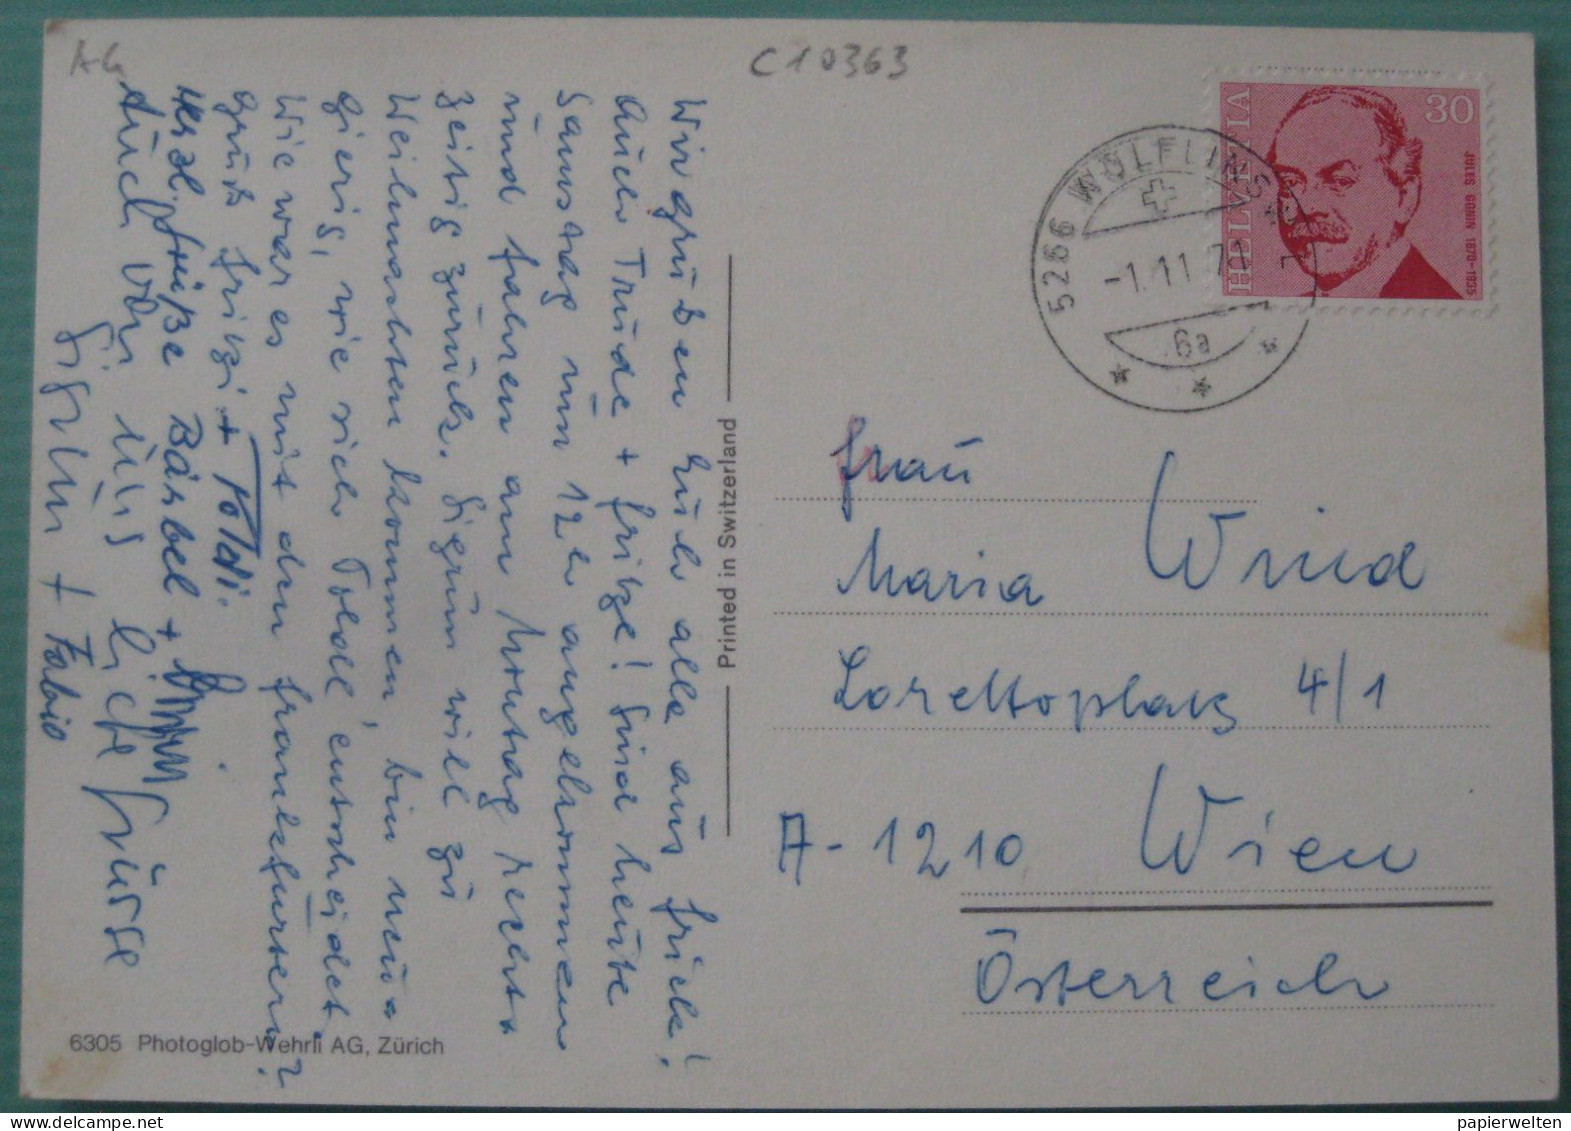 AG
C10363
Wir grüßen Euch alle aus Frick!
Auch Trude + Fritze! Sind heute
Samstag um 12h angekommen
und fahren am Montag rechts
zeitig zurück. Sigrun will zu
Weihnachten kommen, bin neu-
gierig, wie sich Poldl entscheidet.
Wie war es mit den Frankfurtern?
Gruß Fritzi + Poldi.
Herzl. Grüße Bärbel +
Auch von uns liebe Grüsse
Sigrun + Fabio
6305 Photoglob-Wehrli AG, Zürich
Printed in Switzerland
HELVETIA
30
JULES GONIN 1870-1935
5266 WÖLFLINSWIL
-1.11.
6a
Frau
Maria Wind
Lorettoplatz 4/1
A-1210 Wien
Österreich
papierwelten